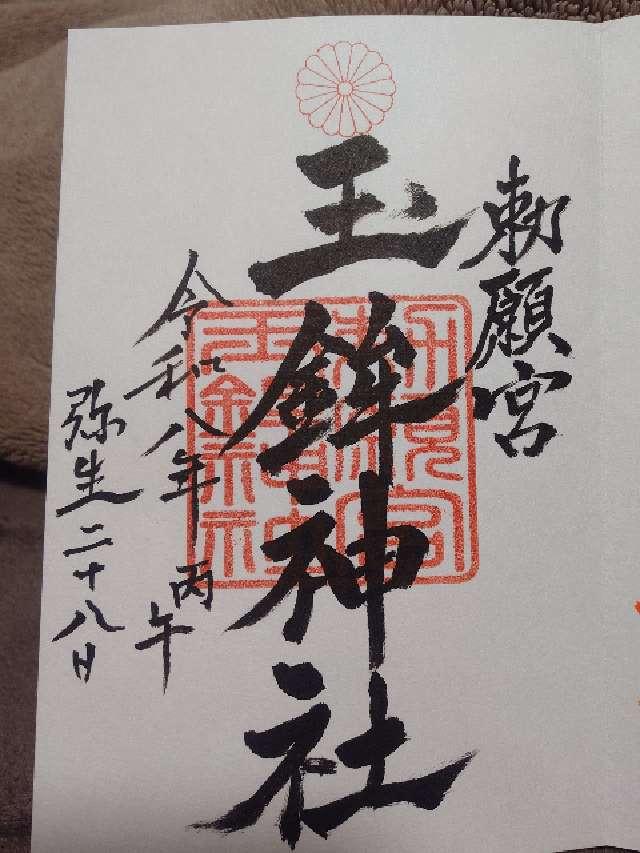 勅願宮
玉鉾神社
令和八年丙午
弥生二十八日